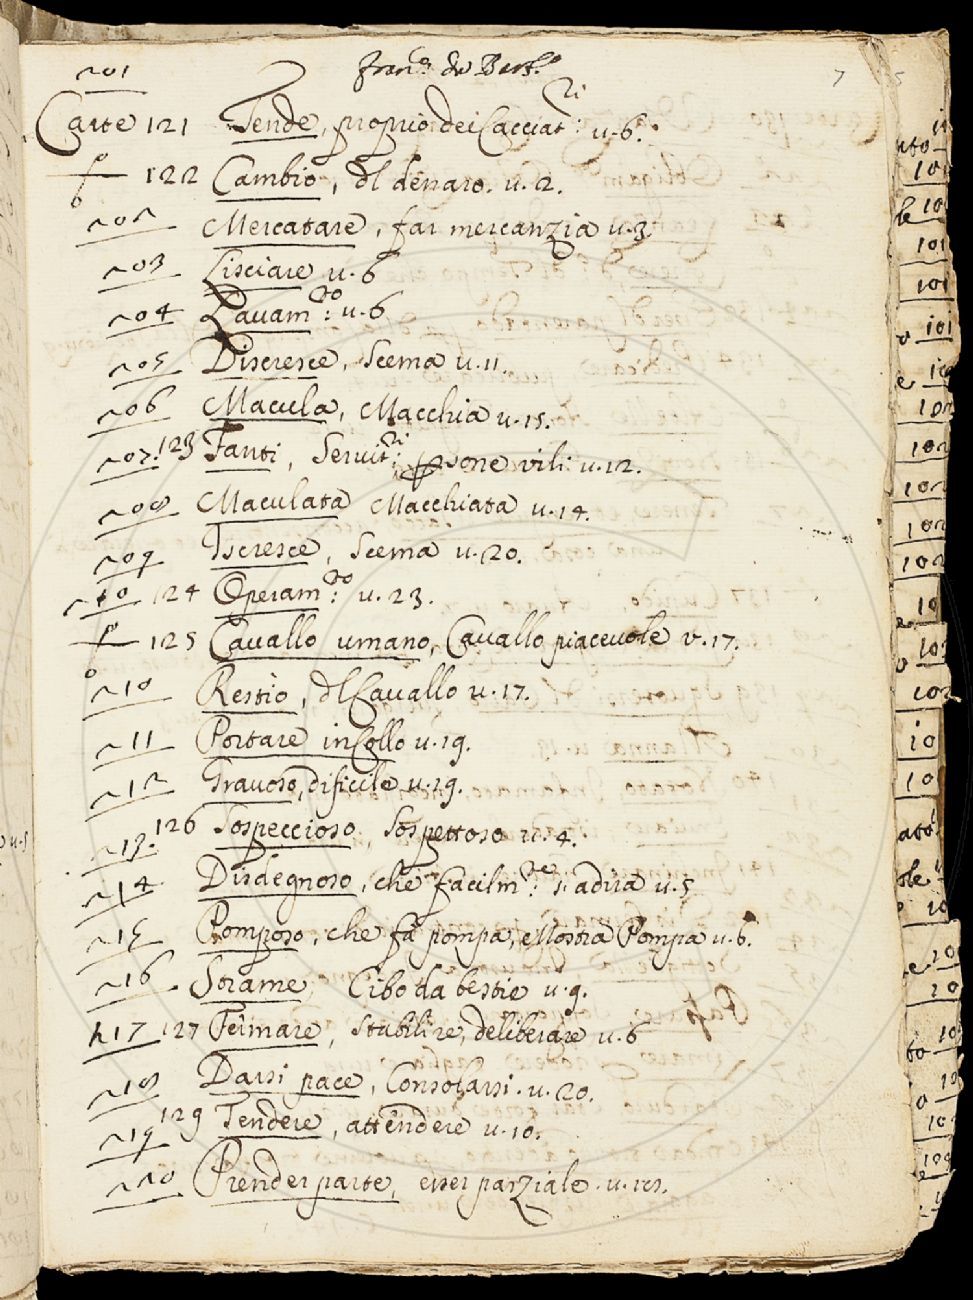 Franc.º da Barb.º
7 5
101
Carte 121 Tende, proprio dei Cacciat:ri u.6.
122 Cambio, dl denaro. u.2.
102 Mercatare, far mercanzia u.3
103 Lisciare u.6
104 Lauam:to u.6
105 Discresce, Scema u.11.
106 Macula, Macchia u.15.
107. 123 Fanti, Seruit:ri, psone vili u.12.
108 Maculata Macchiata u.14.
109 Iscresce, Scema u.20.
110 124 Operam:to u.23.
125 Cauallo umano, Cauallo piaceuole v.17.
110 Restio, dl Cauallo u.17.
111 Portare in Collo u.19.
112 Grauoso, dificile u.19.
113. 126 Sospeccioso, Sospettoso u.4.
114 Disdegnoso, che facilm:te s'adira u.5
115 Pomposo, che fà pompa, e Mostra Pompa u.6.
116 Strame, Cibo da bestie u.9.
117 127 Fermare, Stabilire, deliberare u.6
118 Darsi pace, Consolarsi. u.20.
119 129 Tendere, attendere u.10.
120 Prender parte, esser parziale. u.